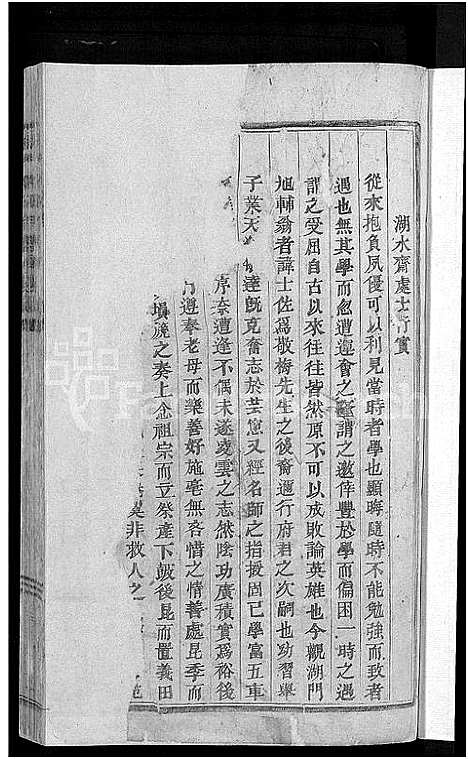 湖水齋處士行實
從來抱負夙優可以利見當時者學也顯晦隨時不能勉強而致者
遇也無其學而忽遭運會之隆謂之邀倖豐於學而偏困一時之遇
謂之受屈自古以來往往皆然原不可以成敗論英雄也今觀湖門
旭林翁者諱士佐爲敬梅先生之後裔邇行府君之次嗣也功習舉
子業天 達既克奮志於芸窓又經名師之指授固已學富五車
序奈遭逢不偶未遂凌雲之志然陰功廣積實爲裕後
遵奉老母而樂善好施毫無吝惜之情善處昆季而
壎篪之奏上念祖宗而立祭產下啟後昆而置義田
莫非救人之